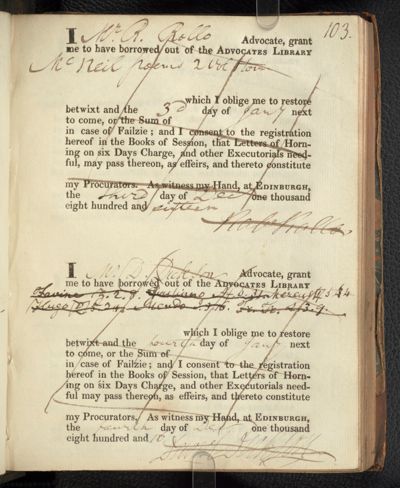 103.
I Mr R. Rollo Advocate, grant
me to have borrowed out of the ADVOCATES LIBRARY
McNeil poems 2 vol
which I oblige me to restore
betwixt and the 3d day of Jany next
to come, or the Sum of
in case of Failzie; and I consent to the registration
hereof in the Books of Session, that Letters of Horn-
ing on six Days Charge, and other Executorials need-
ful, may pass thereon, as effeirs, and thereto constitute
my Procurators. As witness my Hand, at EDINBURGH,
the third day of Dec one thousand
eight hundred and
Robt Rollo
I Mr D. Advocate, grant
me to have borrowed out of the ADVOCATES LIBRARY
which I oblige me to restore
betwixt and the fourth day of Jany next
to come, or the Sum of
in case of Failzie; and I consent to the registration
hereof in the Books of Session, that Letters of Horn-
ing on six Days Charge, and other Executorials need-
ful, may pass thereon, as effeirs, and thereto constitute
my Procurators. As witness my Hand, at EDINBURGH,
the fourth day of Dec one thousand
eight hundred and